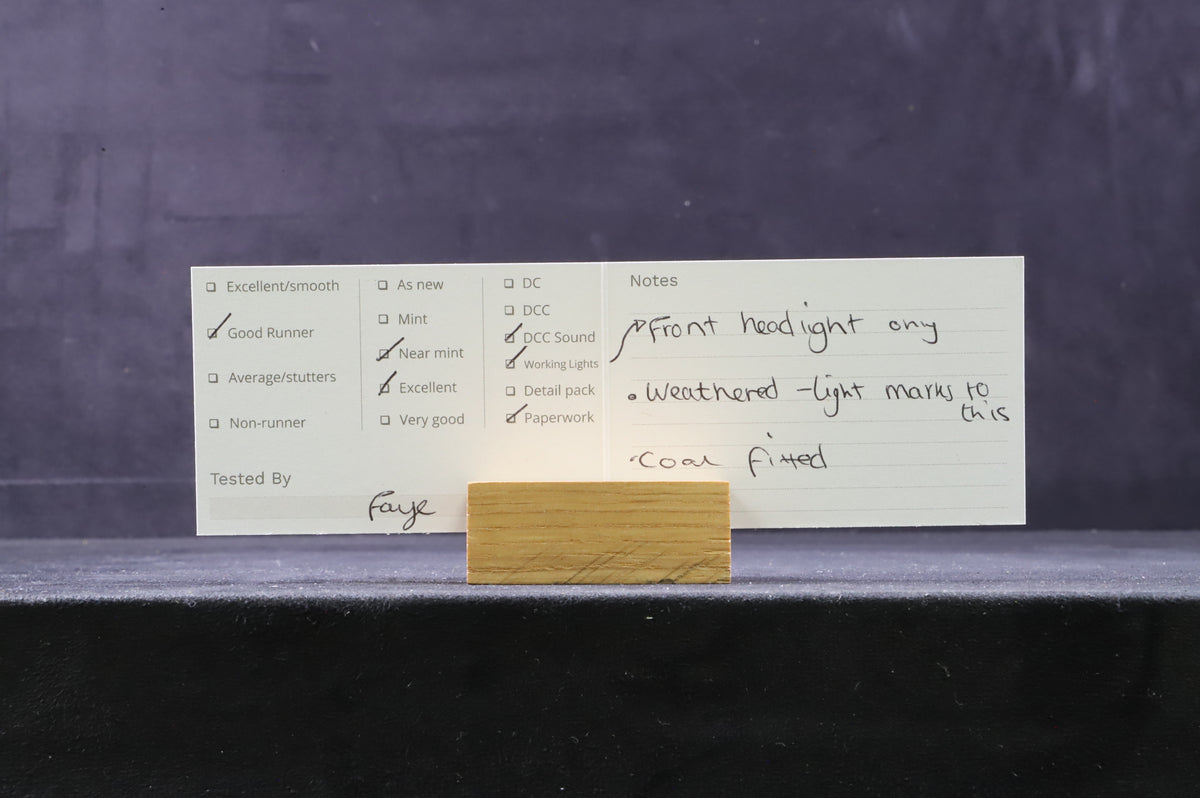 Excellent/smooth
Good Runner
Average/stutters
Non-runner
Tested By
Faye
As new
Mint
Near mint
Excellent
Very good
DC
DCC
DCC Sound
Working Lights
Detail pack
Paperwork
Notes
Front headlight ony
• Weathered - light marks to
this
• Coal fitted